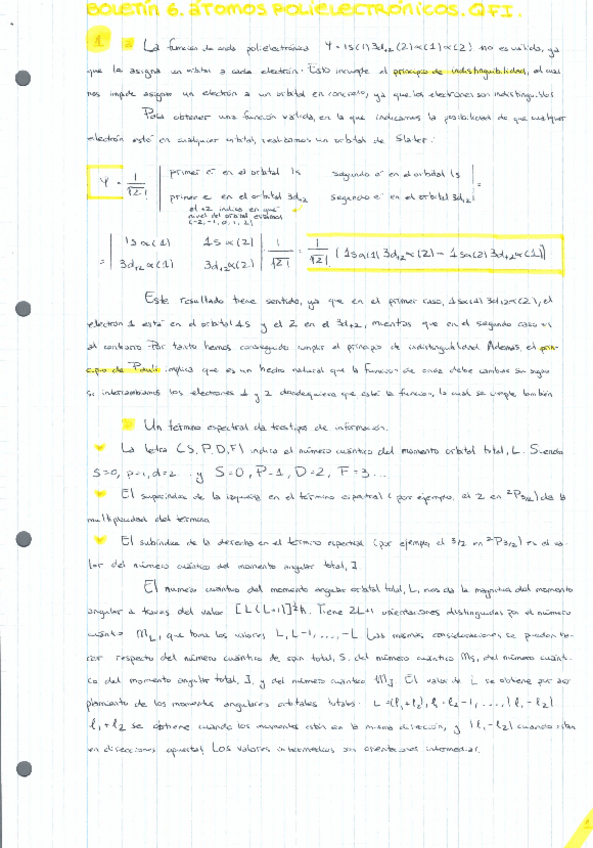 BOLETÍN 6. ÁTOMOS POLIELECTRÓNICOS. QFI.
1 a La función de onda polielectrónica Ψ = 1s(1) 3d+2 (2) ∝(1) ∝(2) no es válida, ya
que le asigna un orbital a cada electrón. Esto incumple el principio de indistinguibilidad, el cual
nos impide asignar un electrón a un orbital en concreto, ya que los electrones son indistinguibles
Para obtener una función válida, en la que indicamos la posibilidad de que cualquier
electrón esté en cualquier orbital, realizamos un orbital de Slater:
Ψ = 1/√2! | primer e⁻ en el orbital 1s segundo e⁻ en el orbital 1s
primer e⁻ en el orbital 3d+2 segundo e⁻ en el orbital 3d+2 | =
el +2 indica en qué
nivel del orbital estamos
(-2, -1, 0, 1, 2)
= | 1s∝(1) 1s∝(2)
3d+2∝(1) 3d+2∝(2) | · 1/√2! = 1/√2! (1s∝(1) 3d+2∝(2) - 1s∝(2) 3d+2∝(1))
Este resultado tiene sentido, ya que en el primer caso, 1s∝(1) 3d+2∝(2), el
electrón 1 está en el orbital 1s y el 2 en el 3d+2, mientras que en el segundo caso es
al contrario. Por tanto hemos conseguido cumplir el principio de indistinguibilidad. Además, el prin-
cipio de Pauli implica que es un hecho natural que la función de onda debe cambiar su signo
si intercambiamos los electrones 1 y 2 dondequiera que esté la función, lo cual se cumple también
b Un término espectral da tres tipos de información.
La letra (S, P, D, F) indica el número cuántico del momento orbital total, L. Siendo
s=0, p=1, d=2 .. y S=0, P=1, D=2, F=3...
El superíndice de la izquierda en el término espectral (por ejemplo, el 2 en ²P3/2) da la
multiplicidad del término
El subíndice de la derecha en el término espectral (por ejemplo el 3/2 en ²P3/2) es el va-
lor del número cuántico del momento angular total, J
El número cuántico del momento angular orbital total, L, nos da la magnitud del momento
angular a través del valor [L(L+1)]^½ ħ. Tiene 2L+1 orientaciones distinguidas por el número
cuántico M_L, que toma los valores L, L-1, ..., -L. Las mismas consideraciones se pueden ha-
cer respecto del número cuántico de spin total, S, del número cuántico Ms, del número cuánti-
co del momento angular total, J, y del número cuántico Mj. El valor de L se obtiene por aco-
plamiento de los momentos angulares orbitales totales. L = (ℓ1+ℓ2), ℓ1+ℓ2-1, ...., |ℓ1-ℓ2|
ℓ1+ℓ2 se obtiene cuando los momentos están en la misma dirección, y |ℓ1-ℓ2| cuando están
en direcciones opuestas. Los valores intermedios son orientaciones intermedias.
1